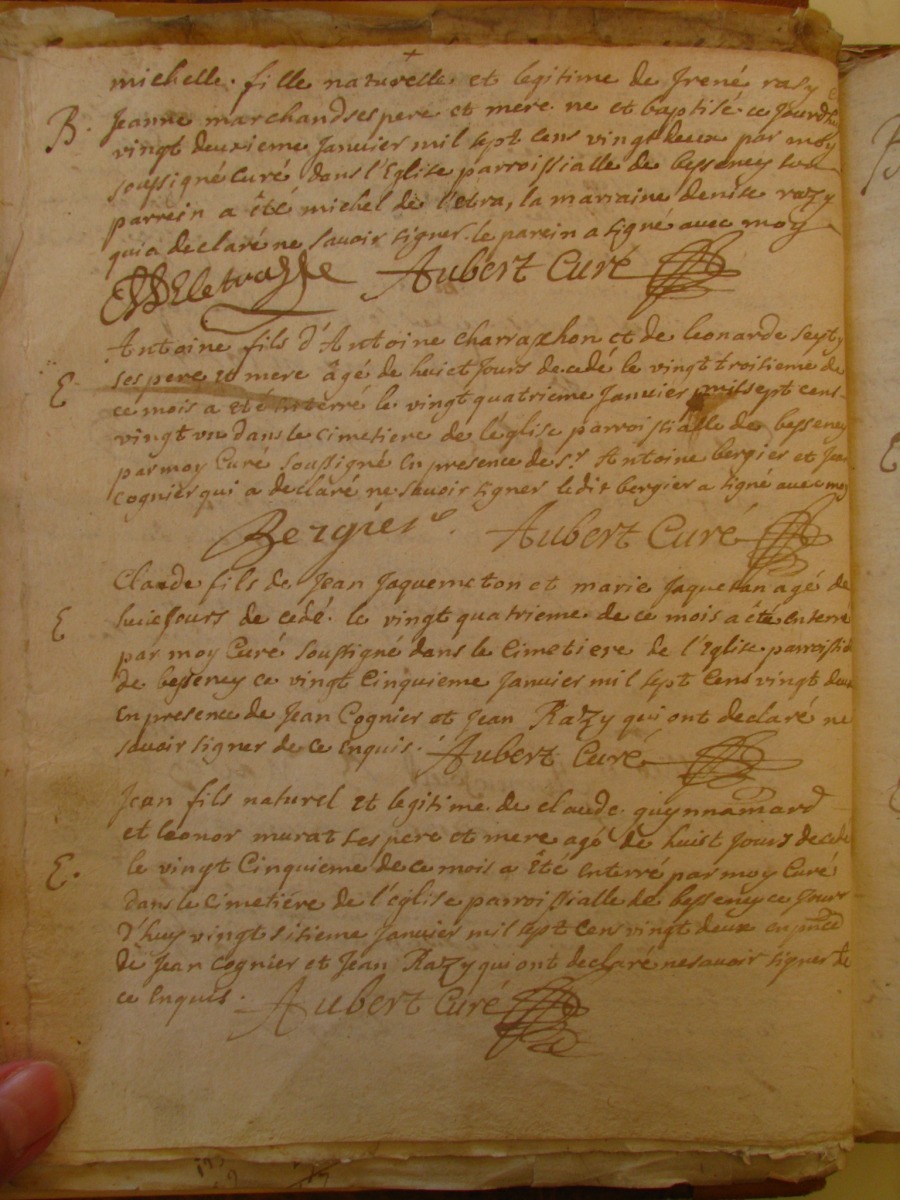 michelle fille naturelle et legitime de Jrené rasy
B. Jeanne marchand ses pere et mere ne et baptise ce Jourdhuy
vingt deuxieme Janvier mil sept cens vingt deux par moy
soussigné curé dans l'Eglise parroissialle de besseney son
parrein a été michel de l'etra, la marraine denise razy
qui a declaré ne savoir signer le parein a signé avec moy
Aubert Curé
Antoine fils d'Antoine charraphon et de leonarde
E ses pere et mere âgé de huict Jours decedé le vingt troisieme de
ce mois a eté enterré le vingt quatrieme Janvier mil sept cens
vingt vn dans le cimetiere de léglise parroissialle de besseney
par moy Curé soussigné en présence de sr. Antoine bergier et Jean
Cognier qui a declaré ne savoir signer ledit bergier a signé avec moy
Bergier Aubert Curé
Claude fils de Jean Jaquemeton et marie agé de
E huict Jours decedé le vingt quatrieme de ce mois a été enterré
par moy Curé soussigné dans le Cimetiere de l'Eglise
de besseney ce vingt Cinquieme Janvier mil sept Cens vingt deux
En presence de Jean Cognier et Jean Razy qui ont declaré ne
savoir signer de ce Enquis. Aubert Curé
Jean fils naturel et legitime de claude
et leonor murat ses pere et mere agé de huict Jours decedé
E. le vingt Cinquieme de ce mois a été enterré par moy Curé
dans le cimetiére de l'église parroissialle de besseney ce Jour
d'huy vingt sisieme Janvier mil sept Cens vingt deux en
de Jean Cognier et Jean Razy qui ont declaré ne savoir signer de
ce Enquis. Aubert Curé